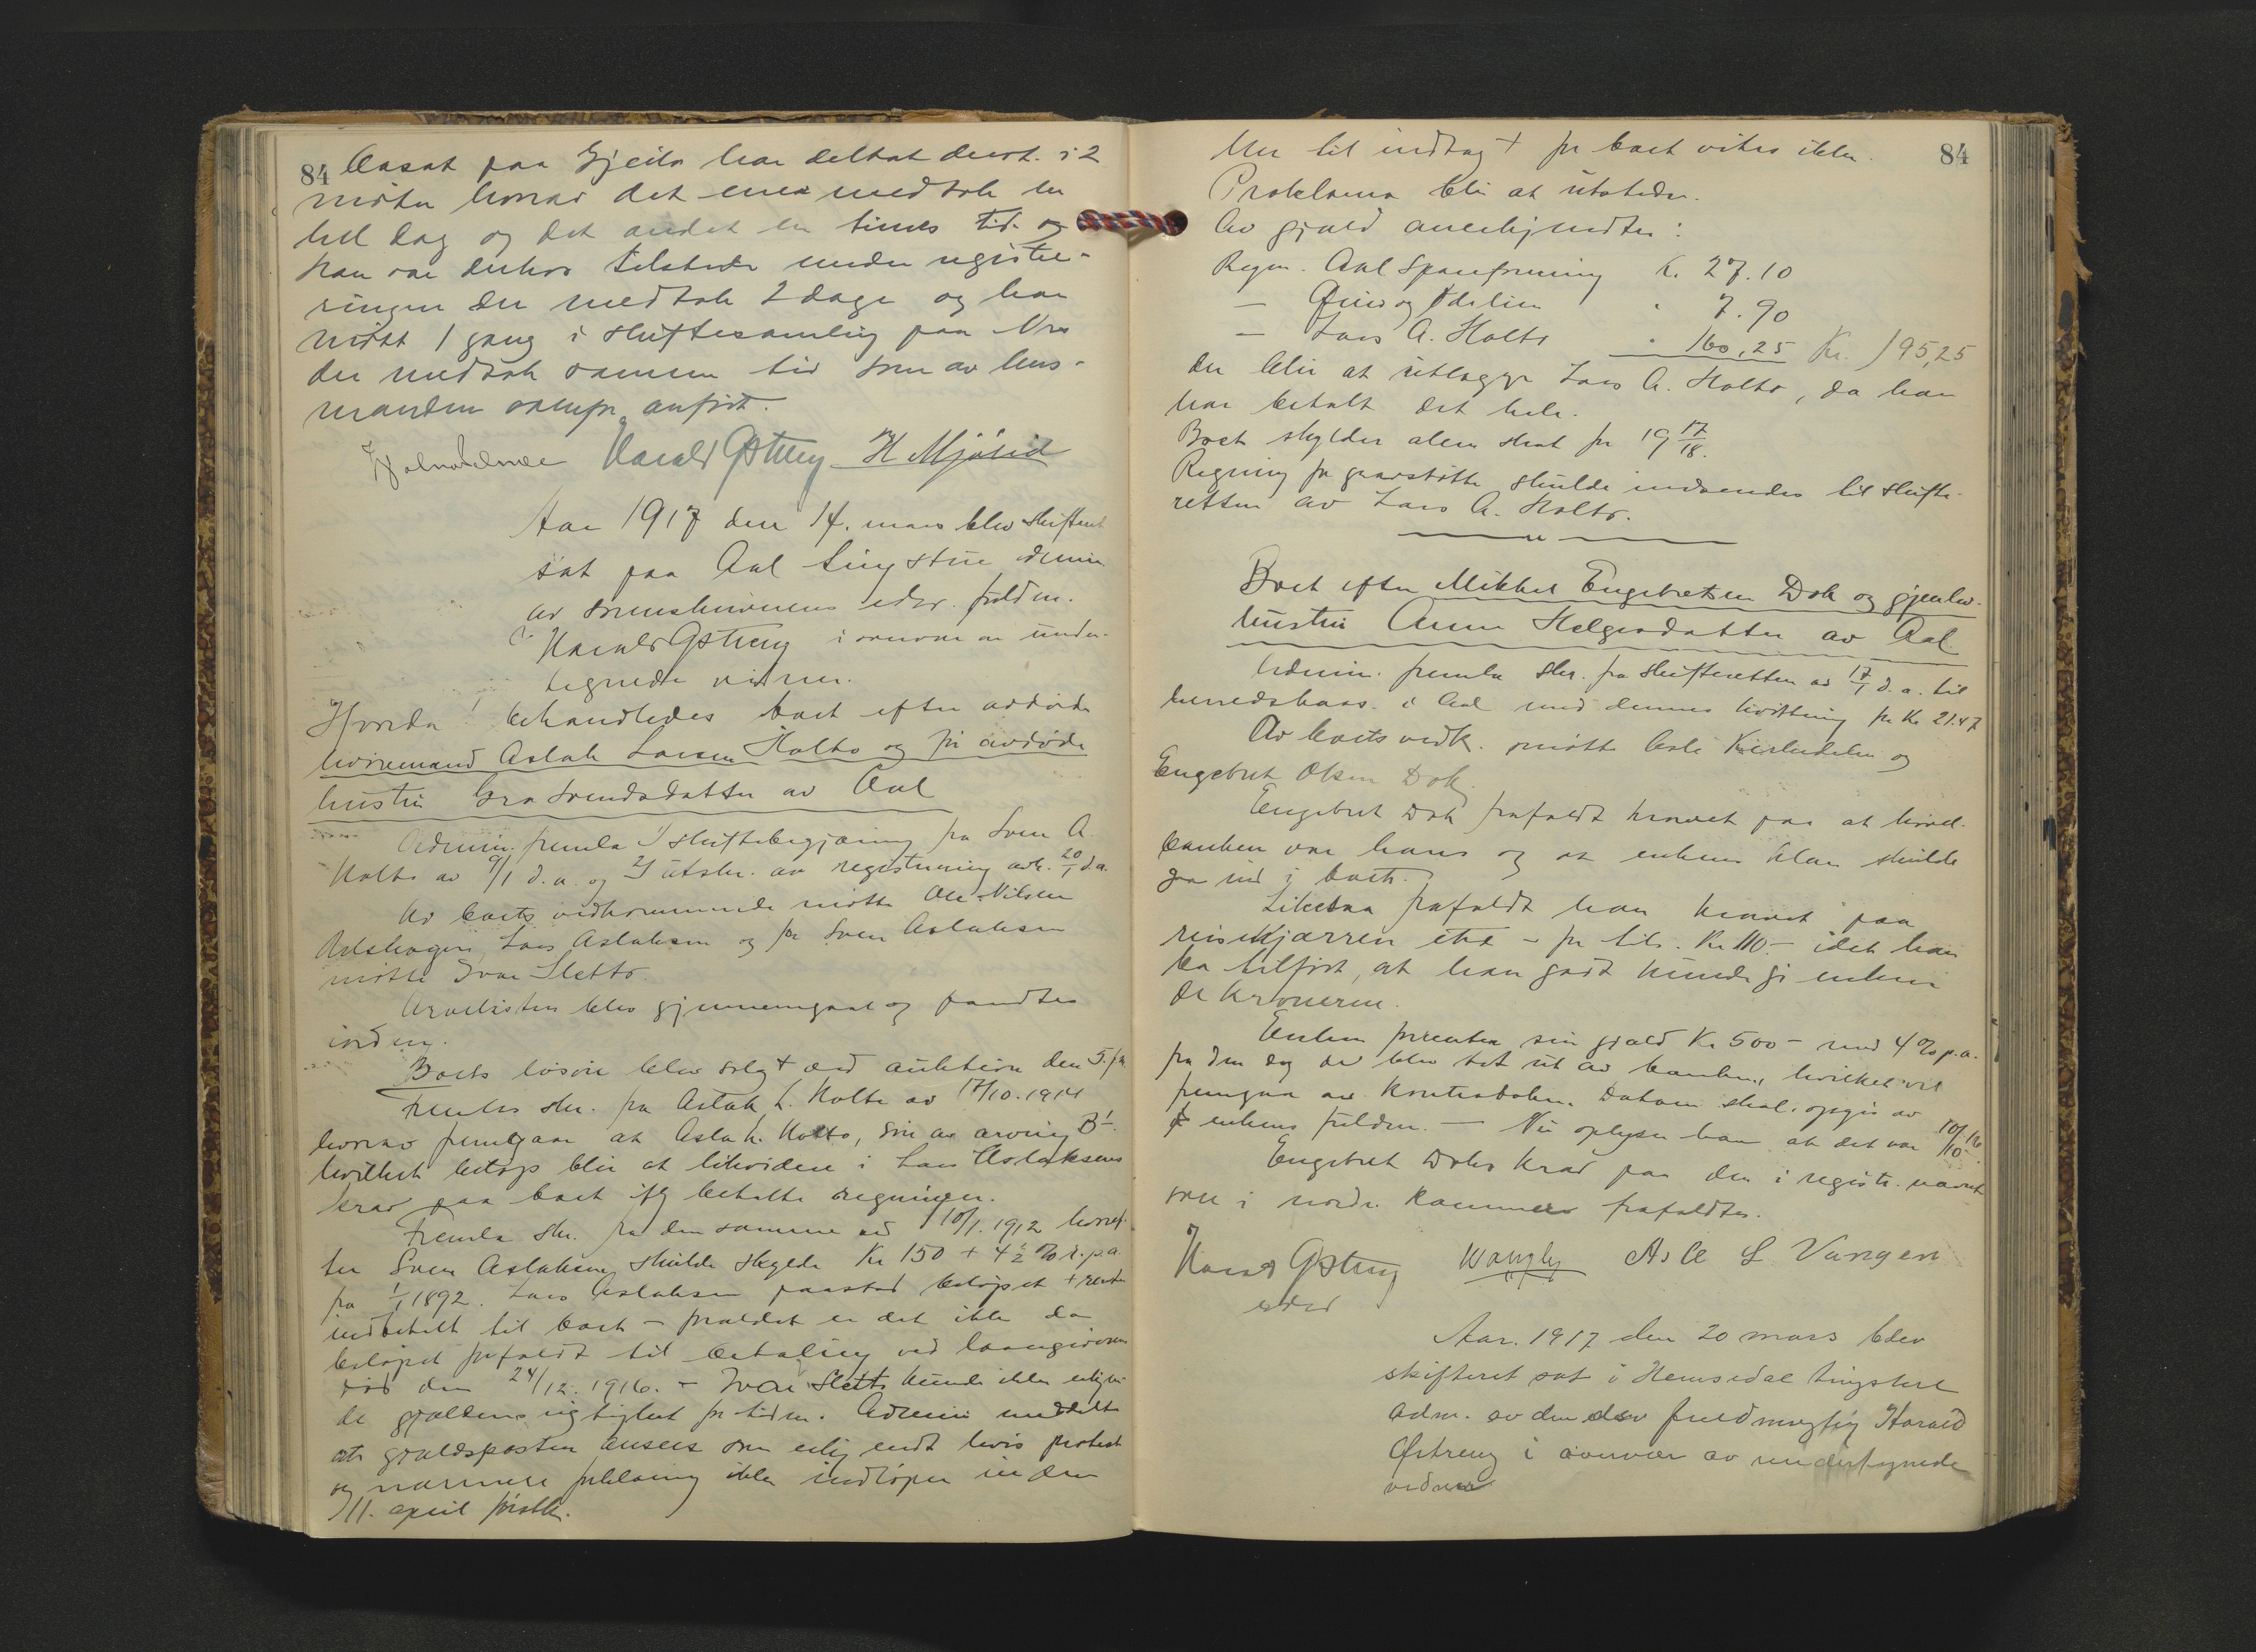 84
paa Gjeilo har deltat i 2
møter hvorav det ene medtok en
hel dag og det andet en times tid og
han var derhos tilstede under registre-
ringen der medtok 2 dage og har
møtt 1 gang i skiftesamling paa
der medtok samme tid som av hus-
manden anført.
Harald Østreng H Mjøsid
Aar 1917 den 14. mars blev skifteret
sat paa Aal tingstue admin.
av sorenskriverens edsv. fuldm.
Harald Østreng i overvær av under-
tegnede vidner.
Hvorda!
behandledes boet efter avdøde
livøremand Aslak Larsen Holto og før avdøde
hustru Svendsdatter av Aal
Admin. fremla 1) skiftebegjæring fra Sven A.
Holto av 9/1 d.a. og 2) utskr. av registrering avh. 20/1 d.a.
Av boets vedkommende møtte Ole Nilsen
Lars Aslaksen og for Sven Aslaksen
møtte Ivar Sletto.
Arvelisten blev gjennemgaat og fandtes
i orden.
Boets løsøre blev solgt ved auktion den 5. f.m.
Fremla skr. fra Aslak L. Holto av 17/10. 1914
hvorav fremgaar at Aslak Holto,
hvilket beløp blir at likvidere i Lars Aslaksens
krav paa boet ifg betalte regninger.
Fremla skr. fra den samme av 10/1. 1912 hvoref-
ter Sven Aslaksen skulde skylde Kr 150 + 4 1/2 % r. p.a.
fra 1/1 1892. Lars Aslaksen paastod beløpet + renter
indbetalt til boet – forældet er det ikke da
beløpet forfaldt til betaling ved laangiverens
død den 24/12. 1916. – Ivar Sletto kunde ikke erkjen-
de gjældens rigtighet for tiden. Admin meddelte
at gjældsposten ansees som erkjendt hvis protest
og nærmere forklaring ikke indløper inden
11. april førstk.
84
Mer til indtægt for boet vites ikke.
Proklama blir at utstede.
Av gjæld anerkjendtes:
Regn. Aal Spareforening Kr. 27.10
— " 7.90
— Lars A. Holto " 160,25 Kr. 195,25
der blir at utlægge Lars A. Holto, da han
har betalt det hele.
Boet skylder alene skat for 19 17/18.
Regning for gravstøtte skulde indsendes til skifte-
retten av Lars A. Holto.
Boet efter Mikkel Engebretsen Dok og gjenlev.
hustru Anne Helgesdatter av Aal.
Admin. fremla skr. fra skifteretten av 17/1 d.a. til
herredskas. i Aal med dennes kvittering for Kr 21.47
Av boets vedk. møtte Asle og
Engebret Olsen Dok.
Engebret Dok frafaldt kravet paa at høvel-
benken var hans og at enkens klær skulde
gaa ind i boet.
Likesaa frafaldt han kravet paa
reisekjærren – Kr 110.– idet han
lot tilført, at han godt kunde gi enken
de kronerne.
Enken forrenter sin gjæld Kr 500 – med 4 % p.a.
fra den dag de blev tat ut av banken, hvilket vil
fremgaa av kontraboken. Datoen skal opgis av
enkens fuldm. – Nu oplyser han at det var 10/10 16.
Engebret Doks krav paa den i registr. nævnte
i nordre kammers frafaldtes.
Harald Østreng Asle L Vangen
edsv
Aar. 1917 den 20 mars blev
skifteret sat i Hemsedal tingsted
adm. av den edsv fuldmægtig Harald
Østreng i overvær av undertegnede
vidner